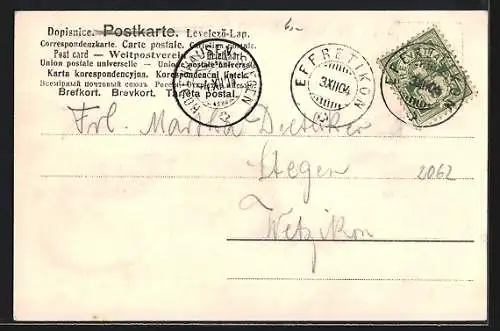 Dopisnice. Postkarte. Levelező-Lap.
Correspondenzkarte. Carte postale. Cartolina postale.
Post card — Weltpostverein —
Union postale universelle — Unione postale universale
Karta korespondencyjna. Korespondenční lístek.
Всемірный почтовый союзъ
Brefkort. Brevkort. Tarjeta postal.
EFFRETIKON
3.XII.04
EFFRETIKON
Frl. Martha
Stegen
2062
Wetzikon